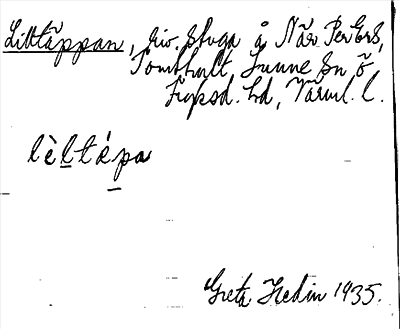 Lilltäppan, riv. stuga å När PerLars,
Tomthult, Sunne sn ö,
Fryksd. hd, Värml. l.
lèltápa
Greta Hedin 1935.